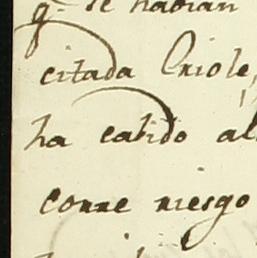 q.e se habian
citada Criole,
ha cabido al
corre riesgo